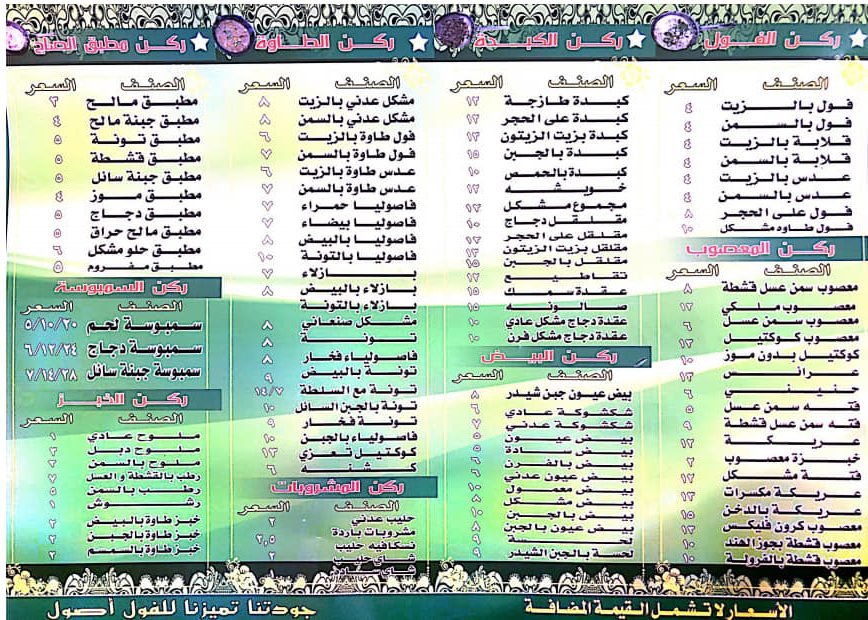 ركن الفول
الصنف السعر
فول بالزيت ٤
فول بالسمن ٤
قلابة بالزيت ٤
قلابة بالسمن ٤
عدس بالزيت ٤
عدس بالسمن ٤
فول على الحجر ٨
فول طاوه مشكل ١٠
ركن المعصوب
الصنف السعر
معصوب سمن عسل قشطة ٨
معصوب ملكي ١٢
معصوب سمن عسل ٦
معصوب كوكتيل ١٣
كوكتيل بدون موز ١٠
عرائس ١٣
حنيني ٦
فته سمن عسل ٥
فته سمن عسل قشطة ٩
عريكة ١٢
خبزة معصوب ٢
فتة مشكل ١٢
عريكة مكسرات ١٣
عريكة بالدخن ١٥
معصوب كرون فليكس ١٣
معصوب قشطة بجوز الهند ١٠
معصوب قشطة بالفرولة ١٠
ركن الكبدة
الصنف السعر
كبدة طازجة ١٢
كبدة على الحجر ١٢
كبدة بزيت الزيتون ١٣
كبدة بالجبن ١٥
كبدة بالحمص ١٠
مجموع مشكل ١٢
مقلقل دجاج ١٠
مقلقل على الحجر ١٣
مقلقل بزيت الزيتون ١٣
مقلقل بالجبن ١٥
تقاطيع ١٢
عقدة سمك ١٥
صالونه ١٥
عقدة دجاج مشكل عادي ١٠
عقدة دجاج مشكل فرن ١٠
ركن البيض
الصنف السعر
بيض عيون جبن شيدر ٨
شكشوكة عادي ٦
شكشوكة عدني ٧
بيض عيون ٥
بيض سادة ٥
بيض بالفرن ٦
بيض عيون عدني ٦
بيض معمول ١٠
بيض مشكل ٨
بيض بالجبن ١٠
بيض عيون بالجبن ٨
لحسة ٩
لحسة بالجبن الشيدر ٩
ركن الطاوة
الصنف السعر
مشكل عدني بالزيت ٨
مشكل عدني بالسمن ٨
فول طاوة بالزيت ٦
فول طاوة بالسمن ٧
عدس طاوة بالزيت ٦
عدس طاوة بالسمن ٧
فاصوليا حمراء ٧
فاصوليا بيضاء ٧
فاصوليا بالبيض ٨
فاصوليا بالتونة ١٠
بازلاء ٧
بازلاء بالبيض ٨
بازلاء بالتونة
مشكل صنعاني ٨
تونة ٨
فاصولياء فخار ٨
تونة بالبيض ٩
تونة مع السلطة ١٤/٧
تونة بالجبن السائل ١٠
تونة فخار ٩
فاصولياء بالجبن ١٠
كوكتيل تعزي ١٣
كشنه ٦
ركن المشروبات
الصنف السعر
حليب عدني ٢
مشروبات باردة
نسكافيه حليب ٢,٥
ركن مطبق الصاج
الصنف السعر
مطبق مالح ٣
مطبق جبنة مالح ٤
مطبق تونة ٥
مطبق قشطة ٥
مطبق جبنة سائل ٥
مطبق موز ٤
مطبق دجاج ٥
مطبق مالح حراق ٥
مطبق حلو مشكل ٦
مطبق مفروم ٥
ركن السمبوسة
الصنف السعر
سمبوسة لحم ٥/١٠/٢٠
سمبوسة دجاج ٦/١٢/٢٤
سمبوسة جبنة سائل ٧/١٤/٢٨
ركن الخبز
الصنف السعر
ملوح عادي ١
ملوح دبل ٣
ملوح بالسمن ٣
رطب بالقشطة و العسل ٧
رطب بالسمن ٥
رشوش ١
خبز طاوة بالبيض ٢
خبز طاوة بالجبن ٢
خبز طاوة بالسمسم ٢
الأسعار لا تشمل القيمة المضافة
جودتنا تميزنا للفول أصول